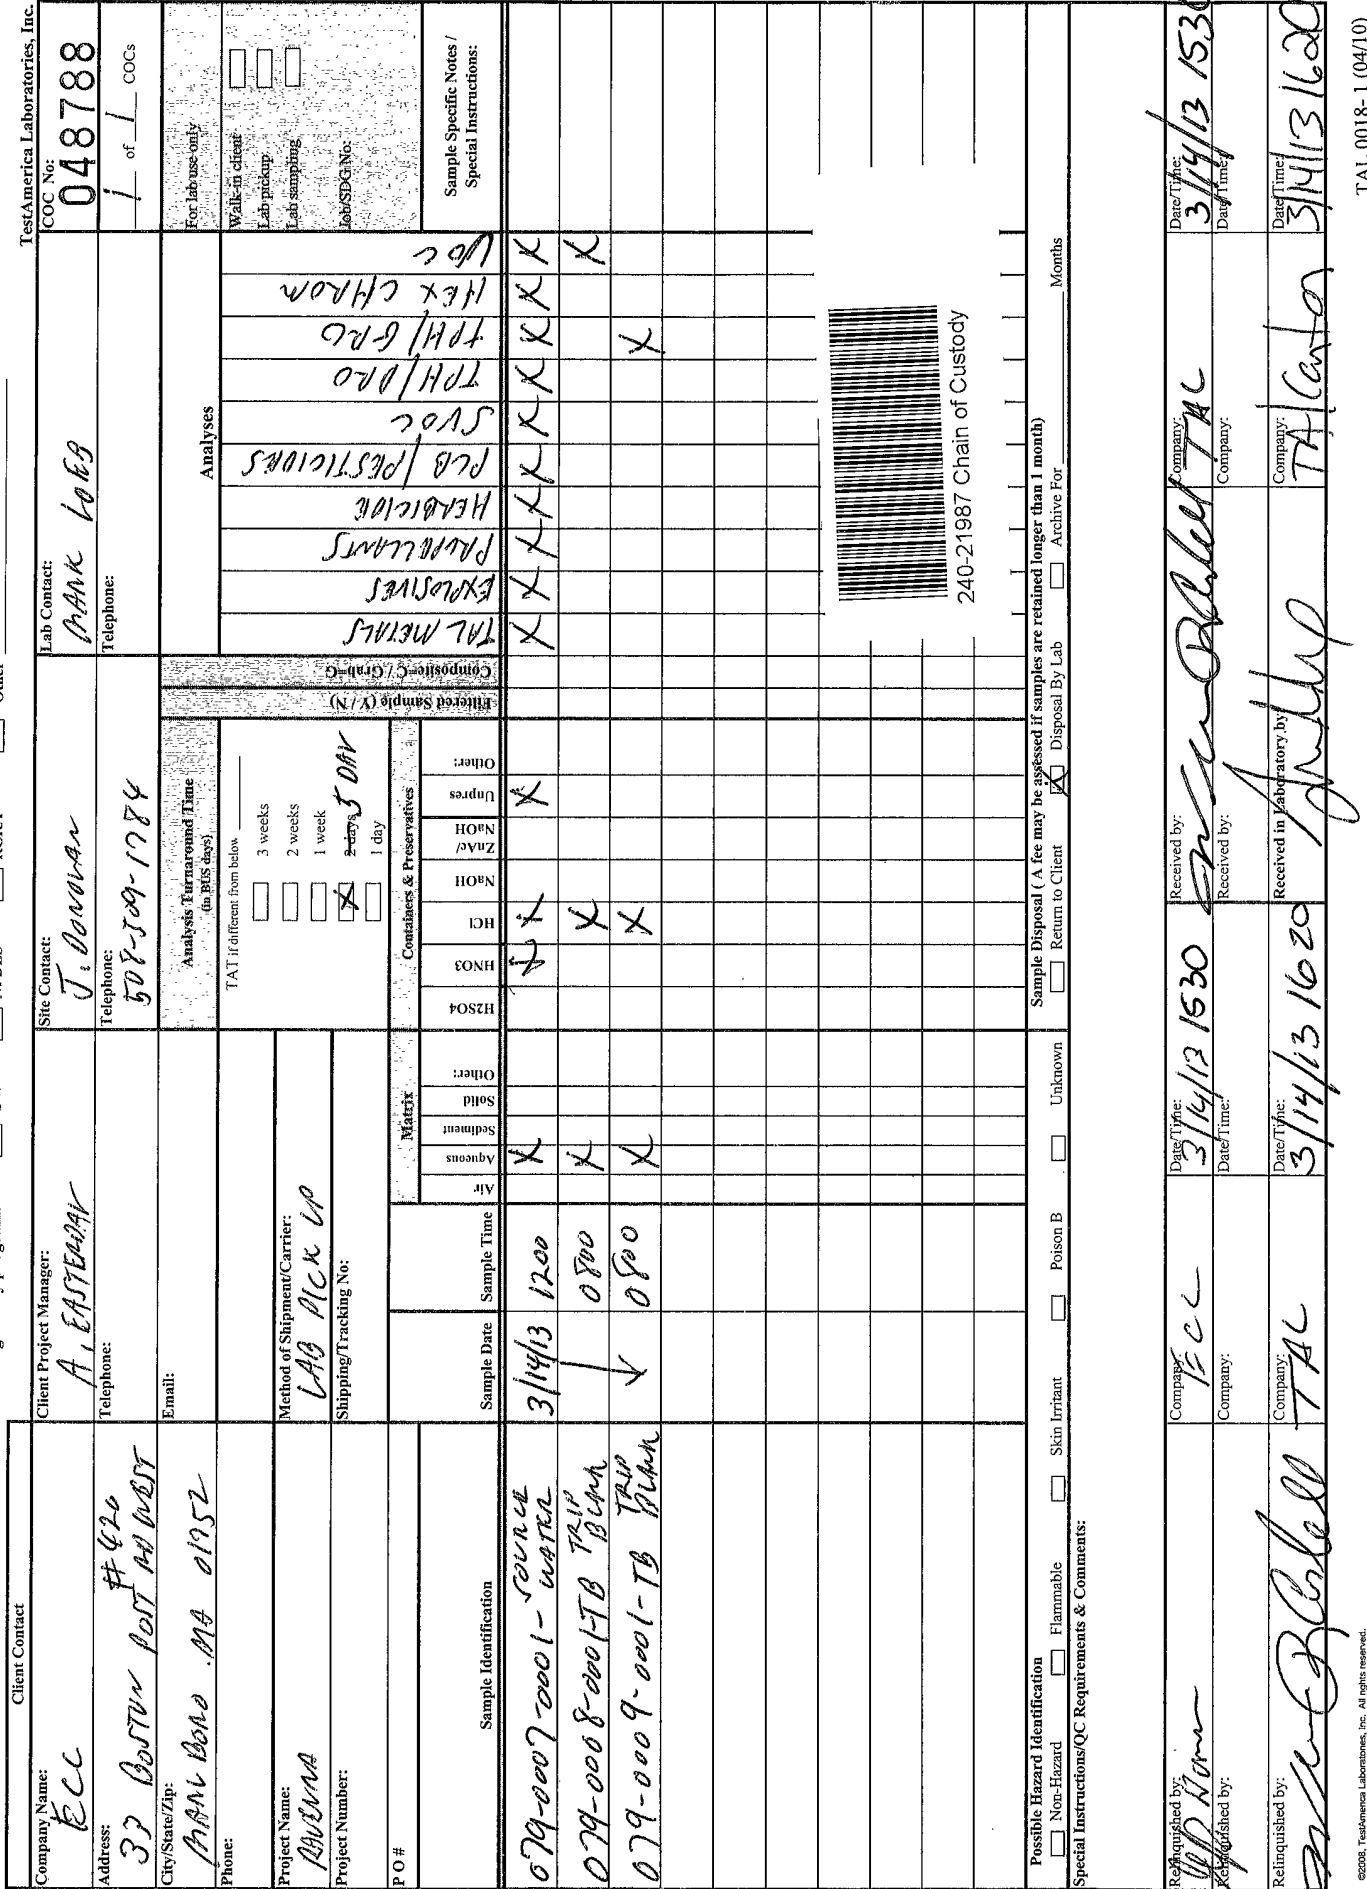 TestAmerica Laboratories, Inc.
Client Contact
Company Name: ECC
Address: #420
33 BOSTON POST RD WEST
City/State/Zip:
MARLBORO MA 01752
Phone:
Project Name:
RAVENNA
Project Number:
P O #
Client Project Manager:
A. EASTERDAY
Telephone:
Email:
Method of Shipment/Carrier:
LAB PICK UP
Shipping/Tracking No:
Site Contact:
J. DONOVAN
Telephone:
508-509-1784
Lab Contact:
MARK LOEB
Telephone:
COC No:
048788
1 of 1 COCs
Analysis Turnaround Time
(in BUS days)
TAT if different from below
3 weeks
2 weeks
1 week
X 2 days 5 DAY
1 day
Analyses
For lab use only
Walk-in client
Lab pickup
Lab sampling
Job/SDG No:
Sample Identification
Sample Date
Sample Time
Matrix
Air
Aqueous
Sediment
Solid
Other:
Containers & Preservatives
H2SO4
HNO3
HCl
NaOH
ZnAc/ NaOH
Unpres
Other:
Filtered Sample (Y / N)
Composite=C / Grab=G
TAL METALS
EXPLOSIVES
PROPELLANTS
HERBICIDE
PCB/PESTICIDES
SVOC
TPH/DRO
TPH/GRO
HEX CHROM
VOC
Sample Specific Notes /
Special Instructions:
079-0007-0001-SOURCE WATER 3/14/13 1200 X X X X X X X X X X X X X X
079-0008-0001-TB TRIP BLANK 0800 X X X
079-0009-0001-TB TRIP BLANK 0800 X X X
240-21987 Chain of Custody
Possible Hazard Identification
Non-Hazard
Flammable
Skin Irritant
Poison B
Unknown
Sample Disposal ( A fee may be assessed if samples are retained longer than 1 month)
Return to Client
X Disposal By Lab
Archive For
Months
Special Instructions/QC Requirements & Comments:
Relinquished by:
Company: ECC
Date/Time: 3/14/13 1530
Received by:
Company: TAC
Date/Time: 3/14/13 1530
Relinquished by:
Company:
Date/Time:
Received by:
Company:
Date/Time:
Relinquished by:
Company: TAC
Date/Time: 3/14/13 1620
Received in Laboratory by:
Company: TA/Canton
Date/Time: 3/14/13 1620
©2008, TestAmerica Laboratories, Inc. All rights reserved.
TAL 0018-1 (04/10)